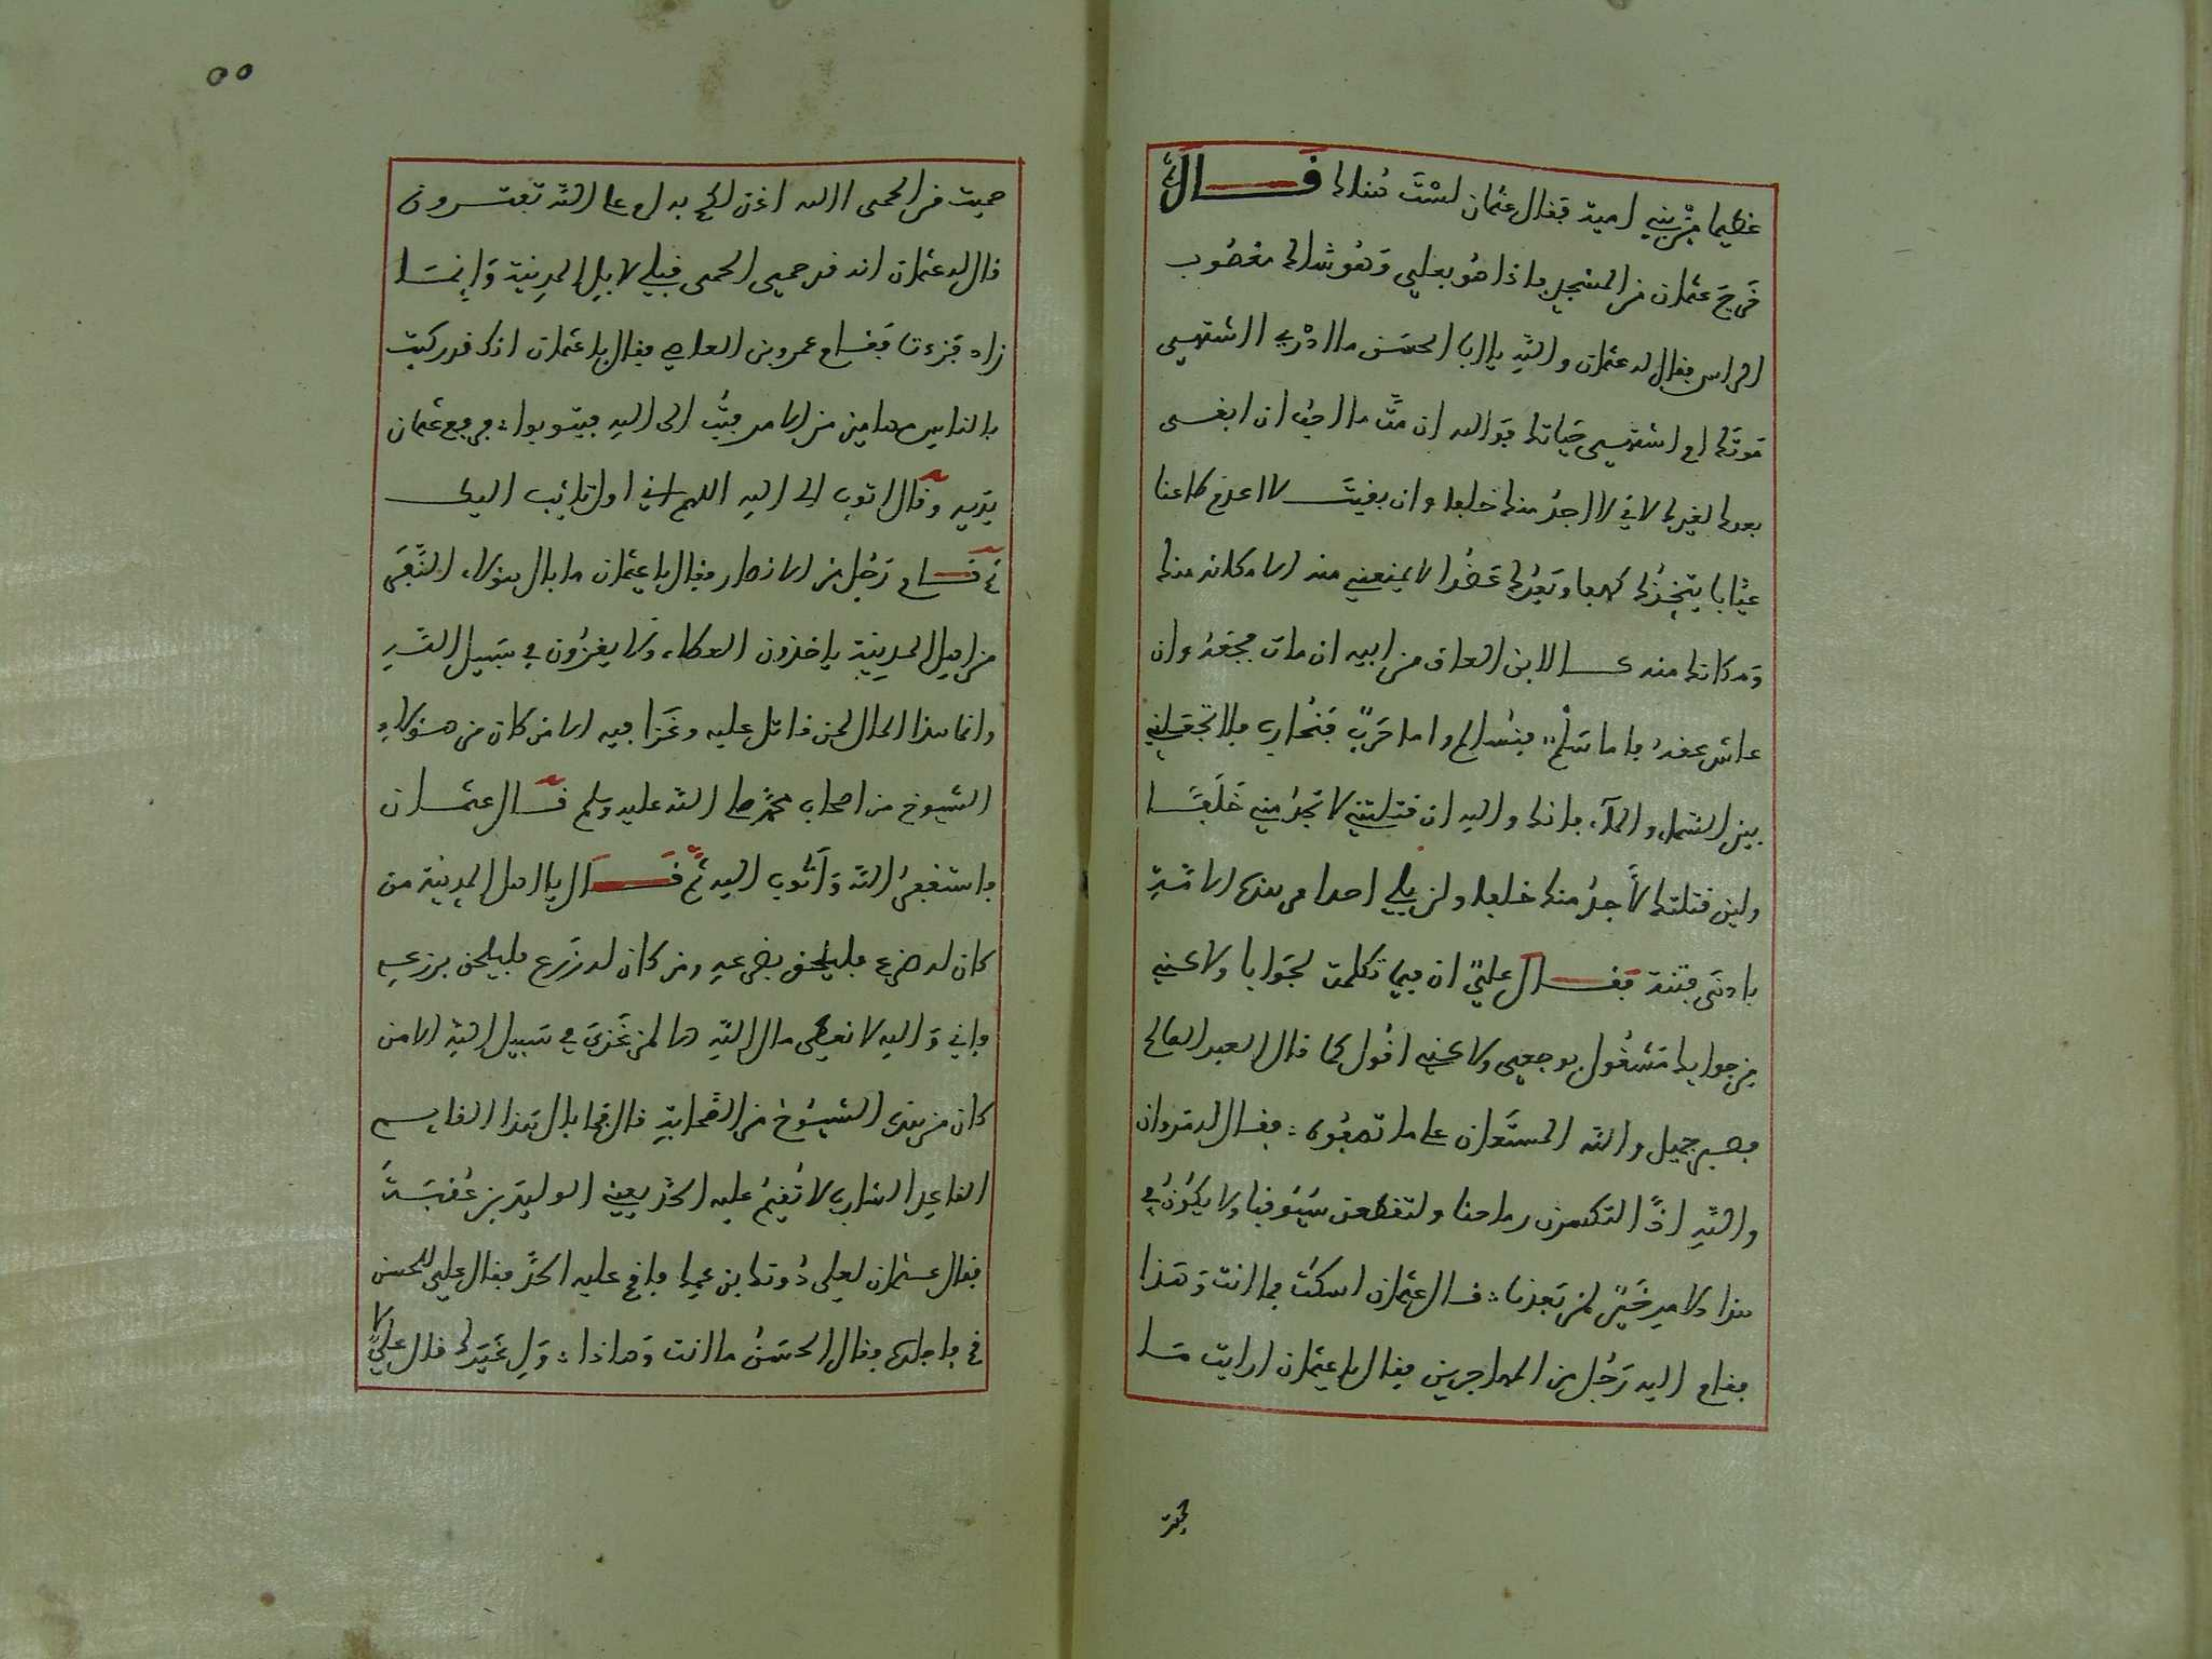 عظيما من بني امية فقال عثمان لست هناك قال
فخرج عثمان من المسجد فاذا هو بعلي وهو شاك معصوب
الراس فقال له عثمان والله يا ابا الحسن ما ادري اشتهي
موتك ام اشتهي حياتك فوالله ان مت ما احب ان ابقى
بعدك لغيرك لاني لا اجد منك خلفا وان بقيت لا اعدم طاغيا
يتخذك كهفا ويعدك عضدا لا يمنعني منه الا مكانه منك
ومكانك منه كالابن العاق من ابيه ان مات فجعه وان
عاش عقه فاما سلم فنسالم واما حرب فنحارب فلا تجعلني
بين السماء والماء فانك والله ان قتلتني لا تجد مني خلفا
ولين قتلتك لا اجد منك خلفا ولن يلي احدا من هذه الامة
بادئ فتنة فقال علي ان فيما تكلمت لجوابا ولاكني
من جوابك مشغول بوجعي ولاكني اقول كما قال العبد الصالح
فصبر جميل والله المستعان على ما تصفون فقال له مروان
والله اذا لتكسرن رماحنا ولتقطعن سيوفنا ولا يكون في
هذا الامر خير لمن بعدنا قال عثمان اسكت ما انت وهذا
فقام اليه رجل من المهاجرين فقال يا عثمان ارايت ما
حميت من الحمى االله اذن لكم به ام على الله تفترون
قال له عثمان انه قد حمى الحمى قبلي لابل المدينة وانما
زاد فزدنا فقام عمرو بن العاص فقال يا عثمان انك قد ركبت
بالناس مهامين من الامر فتب الى الله فيتوبوا فرفع عثمان
يديه وقال اتوب الى الله اللهم اني اول تايب اليك
ثم قام رجل من الانصار فقال يا عثمان ما بال هولاء النفر
من اهل المدينة ياخذون العطاء ولا يغزون في سبيل الله
وانما هذا المال لمن قاتل عليه وغزا فيه الا من كان من هؤلاء
الشيوخ من اصحاب محمد صلى الله عليه وسلم قال عثمان
فاستغفر الله واتوب اليه ثم قال يا اهل المدينة من
كان له ضرع فليلحق بضرعه ومن كان له زرع فليلحق بزرعه
فاني والله لا نعطي مال الله الا لمن غزى في سبيل الله الا من
كان من هذه الشيوخ من الصحابة قال فما بال هذا القايم
القاعد الشارب لا تقيم عليه الحد يعني الوليد بن عقبة
فقال عثمان لعلي دونك ابن عمك فاقم عليه الحد فقال علي للحسن
قم فاجلده فقال الحسن ما انت وهاذا ول غيرك قال علي لا